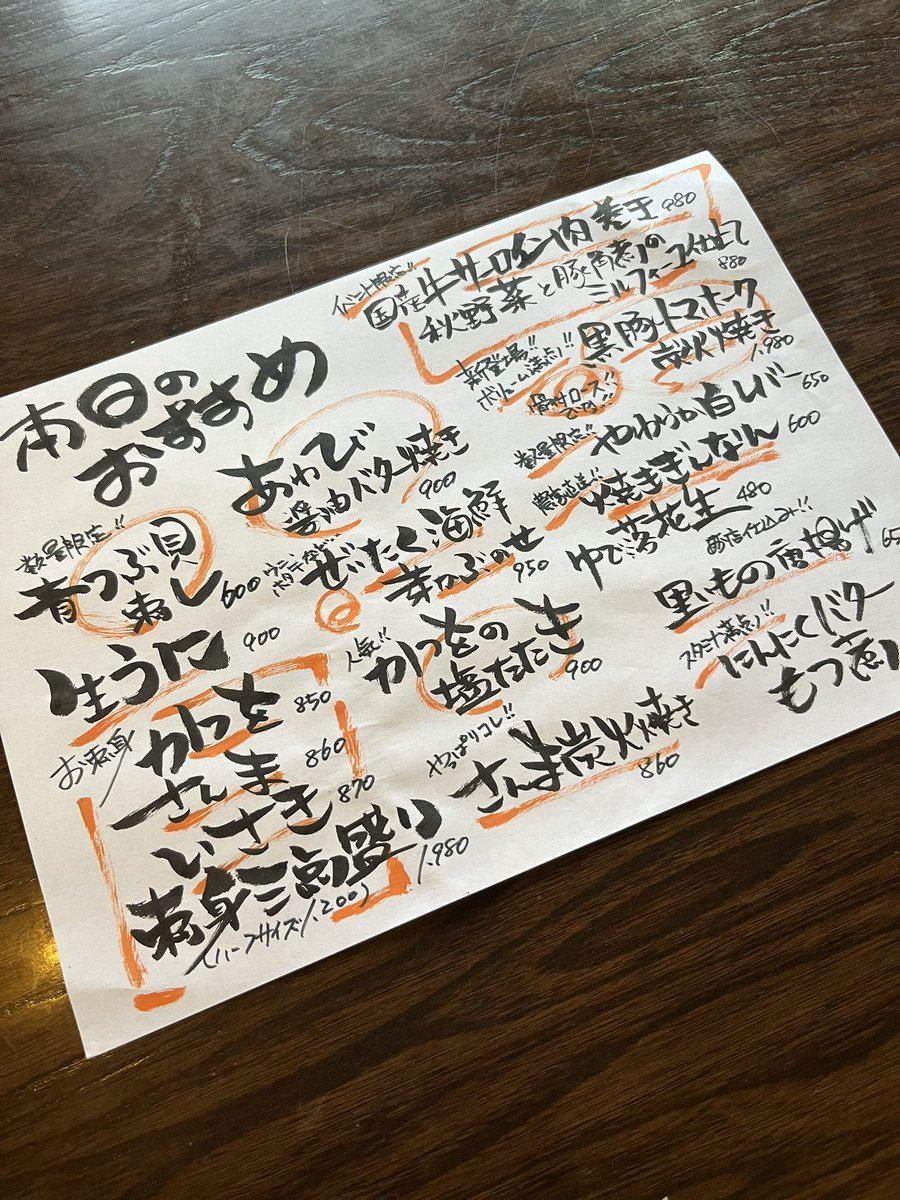 本日の
おすすめ
数量限定!!
青つぶ貝
刺し
600
生うに
900
お刺身
かつを
850
さんま
860
いさき
870
刺身三点盛り
1.980
(ハーフサイズ1.200)
あわび
醤油バター焼き
900
ウニ
ホタテなど…
ぜいたく海鮮
芽かぶのせ
950
人気!!
かつをの
塩たたき
900
やっぱりコレ!!
さんま炭火焼き
860
イベント限定!!
国産牛サーロイン肉巻き
980
秋野菜と豚角煮の
ミルフィーユ仕立て
880
新登場!!
ボリューム満点!!
黒豚トマホーク
炭火焼き
1.980
骨付ロース
です!!
数量限定!!
やわらか白レバー
650
産直!!
焼きぎんなん
600
ゆで落花生
480
当店仕込み!!
里いもの唐揚げ
65
スタミナ満点!!
にんにくバター
もつ煮